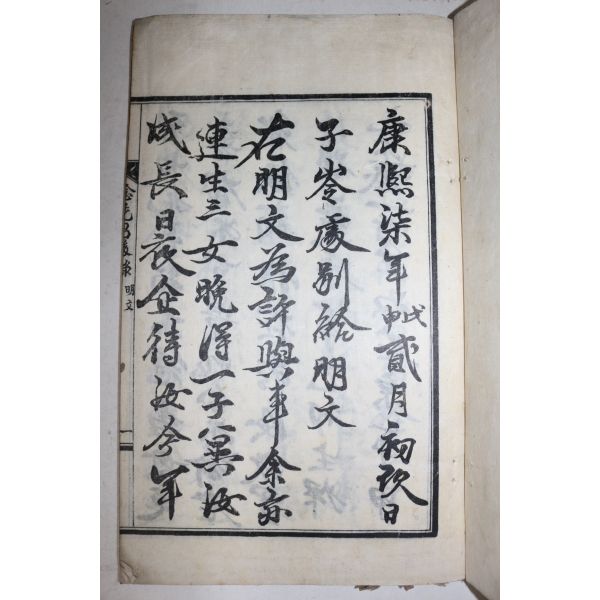 康熙柒年戊申貳月初玖日
子岺處別給明文
右明文爲許與事余亦
連生三女晩得一子冀汝
成長日夜企待汝今年
明文